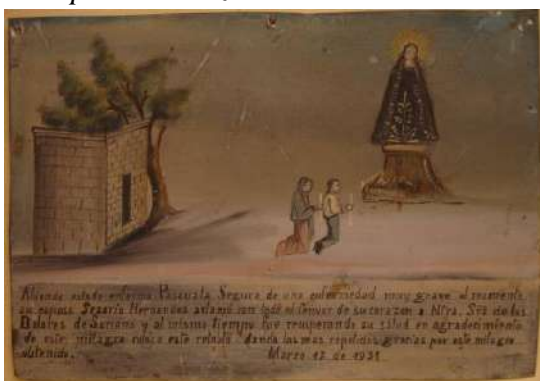 Abiendo estado enferma Pascuala Segura de una enfermedad muy grave al momento
su esposo Sesario Hernandes aclamó con todo el fervor de su corazon a Ntra. Srã de los
Dolores de Soriano y al mismo tiempo fue recuperando su salud en agradecimiento
de este milagro coloco este retablo dando las mas repetidas gracias por este milagro
obtenido. Marzo 13 de 1931